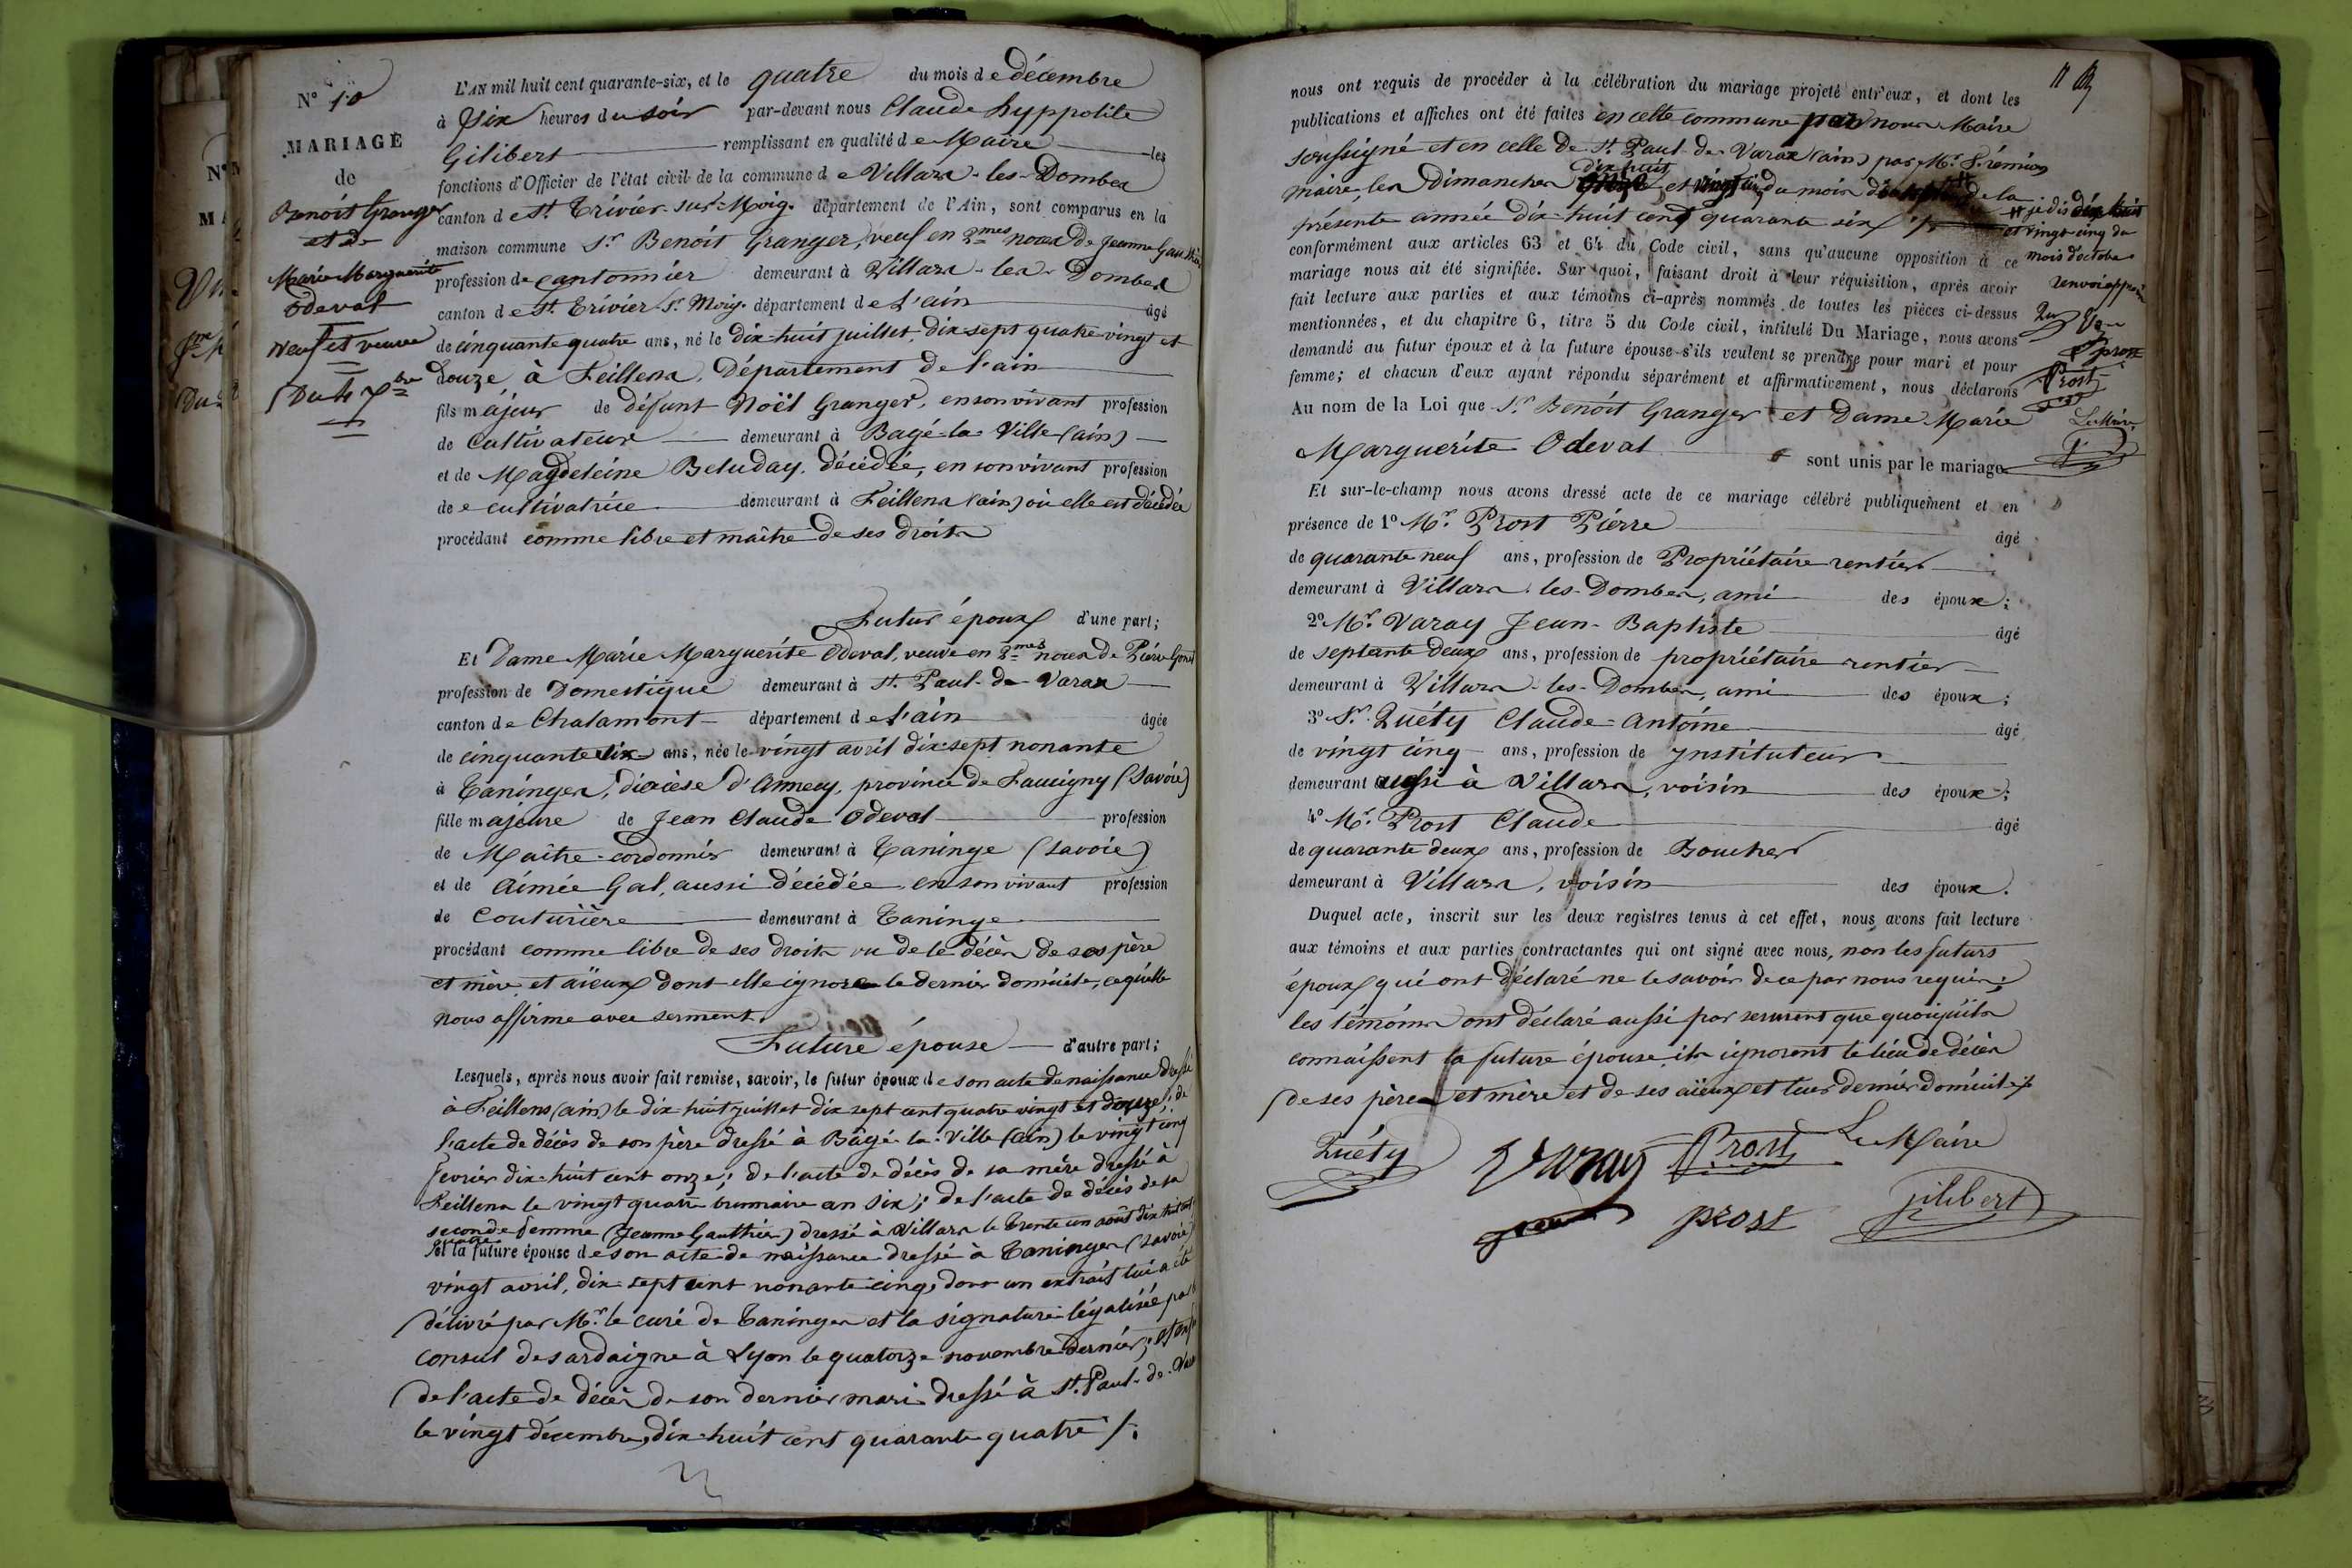 N° 10
MARIAGE
de
Benoit Granger
et de
Marie Marguerite
Odeval
veuf et veuve
Du 4 Xbre
L'AN mil huit cent quarante-six, et le quatre du mois de décembre
à six heures du soir par-devant nous Claude hyppolite
Gilibert remplissant en qualité de Maire les
fonctions d'Officier de l'état civil de la commune de Villars-les-Dombes
canton de St. Trivier-sur-Moig. département de l'Ain, sont comparus en la
maison commune Sr Benoit Granger, veuf en 2mes noces de Jeanne Gauthier
profession de cantonnier demeurant à Villars-les-Dombes
canton de St. Trivier Sr. Moig. département de l'ain âgé
de cinquante quatre ans, né le dix-huit juillet, dix-sept quatre-vingt et
Douze à Feillens, Département de l'ain
fils majeur de défunt Noël Granger, en son vivant profession
de Cultivateur demeurant à Bagé-la-Ville (ain)
et de Magdeleine Beluday, décédée, en son vivant profession
de cultivatrice demeurant à Feillens (ain) où elle est décédée
procédant comme libre et maître de ses droits
Futur époux d'une part;
Et Dame Marie Marguerite Odeval, veuve en 2mes noces de Pière
profession de Domestique demeurant à St. Paul-de-Varax
canton de Chalamont département de l'ain âgée
de cinquante six ans, née le vingt avril dix-sept nonante
à Taninges, diocèse d'Annecy, province de Faucigny (Savoie)
fille majeure de Jean Claude Odeval profession
de Maître-cordonnier demeurant à Taninge (Savoie)
et de Aimée Gal, aussi décédée en son vivant profession
de Couturière demeurant à Taninge
procédant comme libre de ses droits vu de le décès de ses père
et mère et aïeux dont elle ignore le dernier domicile, ce qu'elle
nous affirme avec serment.
Future épouse d'autre part;
Lesquels, après nous avoir fait remise, savoir, le futur époux de son acte de naissance dressé
à Feillens (ain) le dix-huit juillet dix sept cent quatre vingt et douze; de
l'acte de décès de son père dressé à Bâgé-la-Ville (ain) le vingt cinq
fevrier dix-huit cent onze; de l'acte de décès de sa mère dressé à
Feillens le vingt quatre brumaire an six; de l'acte de décès de sa
seconde femme (Jeanne Gauthier) dressé à Villars le trente un août dix huit cent
Et la future épouse de son acte de naissance dressé à Taninges (Savoie)
vingt avril, dix-sept cent nonante cinq, dont un extrait lui a été
délivré par Mr. le curé de Taninges et la signature légalisée par
consul de Sardaigne à Lyon le quatorze novembre dernier;
de l'acte de décès de son dernier mari dressé à St. Paul-de-Varax
le vingt décembre, dix-huit cent quarante quatre /.
nous ont requis de procéder à la célébration du mariage projeté entr'eux, et dont les
publications et affiches ont été faites en cette commune par nous Maire
soussigné et en celle de St. Paul-de-Varax (ain) par Mr.
dix huit
maire, les Dimanches et du mois de la
présente année dix-huit cent quarante six /.
conformément aux articles 63 et 64 du Code civil, sans qu'aucune opposition à ce
mariage nous ait été signifiée. Sur quoi, faisant droit à leur réquisition, après avoir
fait lecture aux parties et aux témoins ci-après nommés de toutes les pièces ci-dessus
mentionnées, et du chapitre 6, titre 5 du Code civil, intitulé Du Mariage, nous avons
demandé au futur époux et à la future épouse s'ils veulent se prendre pour mari et pour
femme; et chacun d'eux ayant répondu séparément et affirmativement, nous déclarons
Au nom de la Loi que Sr. Benoit Granger et Dame Marie
Marguerite Odeval sont unis par le mariage.
je dis dix huit
et vingt-cinq du
mois d'octobre
renvoi approuvé
Prost
Prost
Le Maire
Et sur-le-champ nous avons dressé acte de ce mariage célébré publiquement et en
présence de 1° Mr. Prost Pierre âgé
de quarante neuf ans, profession de Propriétaire rentier
demeurant à Villars-les-Dombes, ami des époux;
2° Mr. Varay Jean-Baptiste âgé
de septante deux ans, profession de propriétaire rentier
demeurant à Villars-les-Dombes, ami des époux;
3° Sr. Quéty Claude-Antoine âgé
de vingt cinq ans, profession de Instituteur
demeurant aussi à Villars, voisin des époux;
4° Mr. Prost Claude âgé
de quarante deux ans, profession de Boucher
demeurant à Villars, voisin des époux.
Duquel acte, inscrit sur les deux registres tenus à cet effet, nous avons fait lecture
aux témoins et aux parties contractantes qui ont signé avec nous, non les futurs
époux qui ont déclaré ne le savoir de ce par nous requis;
les témoins ont déclaré aussi par serment que quoiqu'ils
connaissent la future épouse, ils ignorent le lieu de décès
de ses père et mère et de ses aïeux et leur dernier domicile /.
Quéty Varay Prost Le Maire
Prost Gilibert